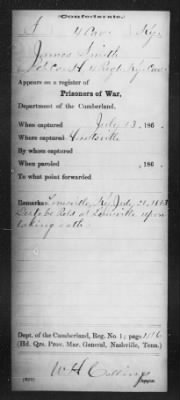 (Confederate.)
S 4 Cav Ky.
James Smith
Co. H 4 Regt Ky Cav
Appears on a register of
Prisoners of War,
Department of the Cumberland.
When captured July 13, 186 .
Where captured Huntsville
By whom captured
When paroled , 186 .
To what point forwarded
Remarks: Louisville, Ky July 21, 1863
to be Reld at Louisville upon
taking oath.
Dept. of the Cumberland, Reg. No. 1; page
(Hd. Qrs. Prov. Mar. General, Nashville, Tenn.)
W H
Copyist.